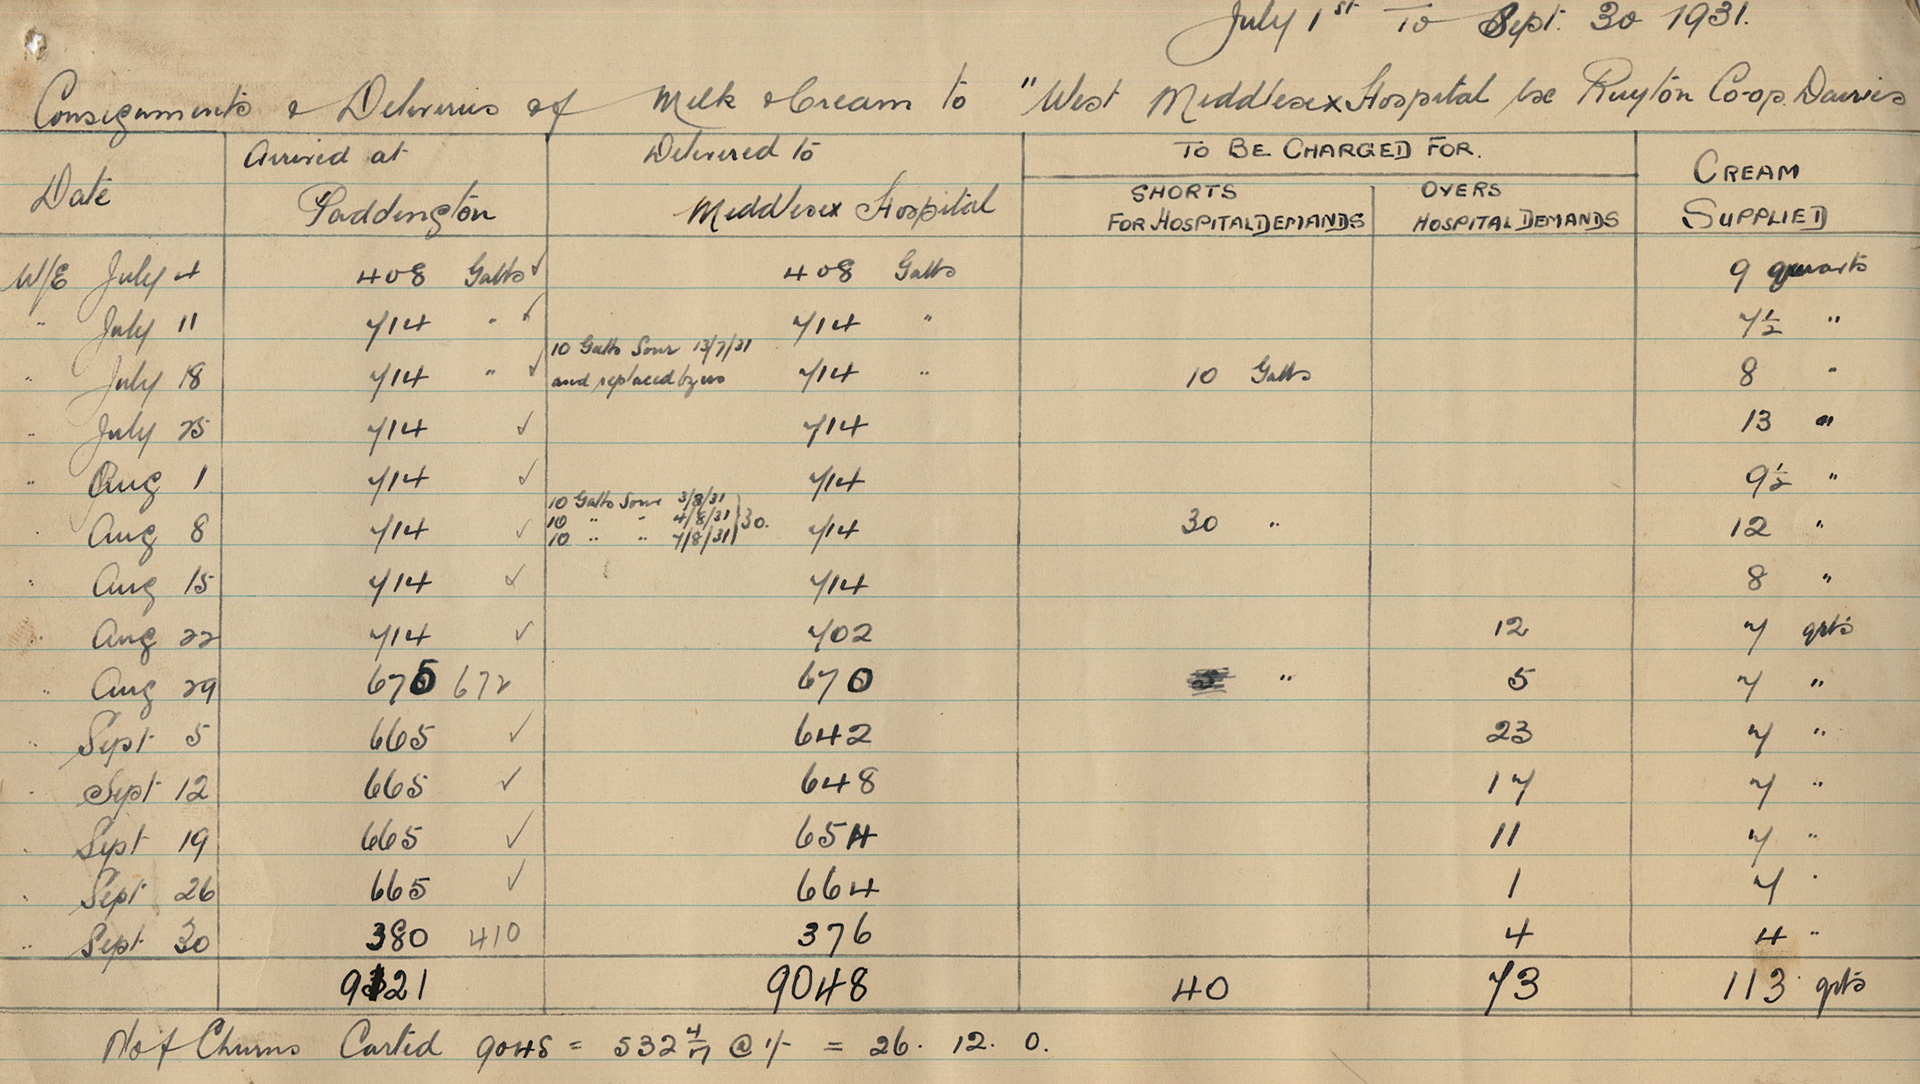 July 1st To Sept. 30 1931.
Consignments & Deliveries of Milk & Cream to "West Middlesex Hospital Ruyton Co-op. Dairies
Date Arrived at Paddington Delivered to Middlesex Hospital TO BE CHARGED FOR. CREAM SUPPLIED
SHORTS FOR HOSPITAL DEMANDS OVERS HOSPITAL DEMANDS
W/E July 4 408 Galls ✓ 408 Galls 9 quarts
" July 11 714 " ✓ 714 " 7½ "
10 Galls Sour 13/7/31
" July 18 714 " ✓ and replaced by us 714 " 10 Galls 8 "
" July 25 714 ✓ 714 13 "
" Aug 1 714 ✓ 714 9½ "
10 Galls Sour 3/8/31
" Aug 8 714 ✓ 10 " " 4/8/31 } 30. 714 30 " 12 "
10 " " 7/8/31
" Aug 15 714 ✓ 714 8 "
" Aug 22 714 ✓ 702 12 7 qrts
" Aug 29 675 672 670 " 5 7 "
" Sept 5 665 ✓ 642 23 7 "
" Sept 12 665 ✓ 648 17 7 "
" Sept 19 665 ✓ 654 11 7 "
" Sept 26 665 ✓ 664 1 7 "
" Sept 30 380 410 376 4 4 "
9121 9048 40 73 113 qrts
No of Churns Carted 9048 = 532 4/17 @ 1/- = 26. 12. 0.